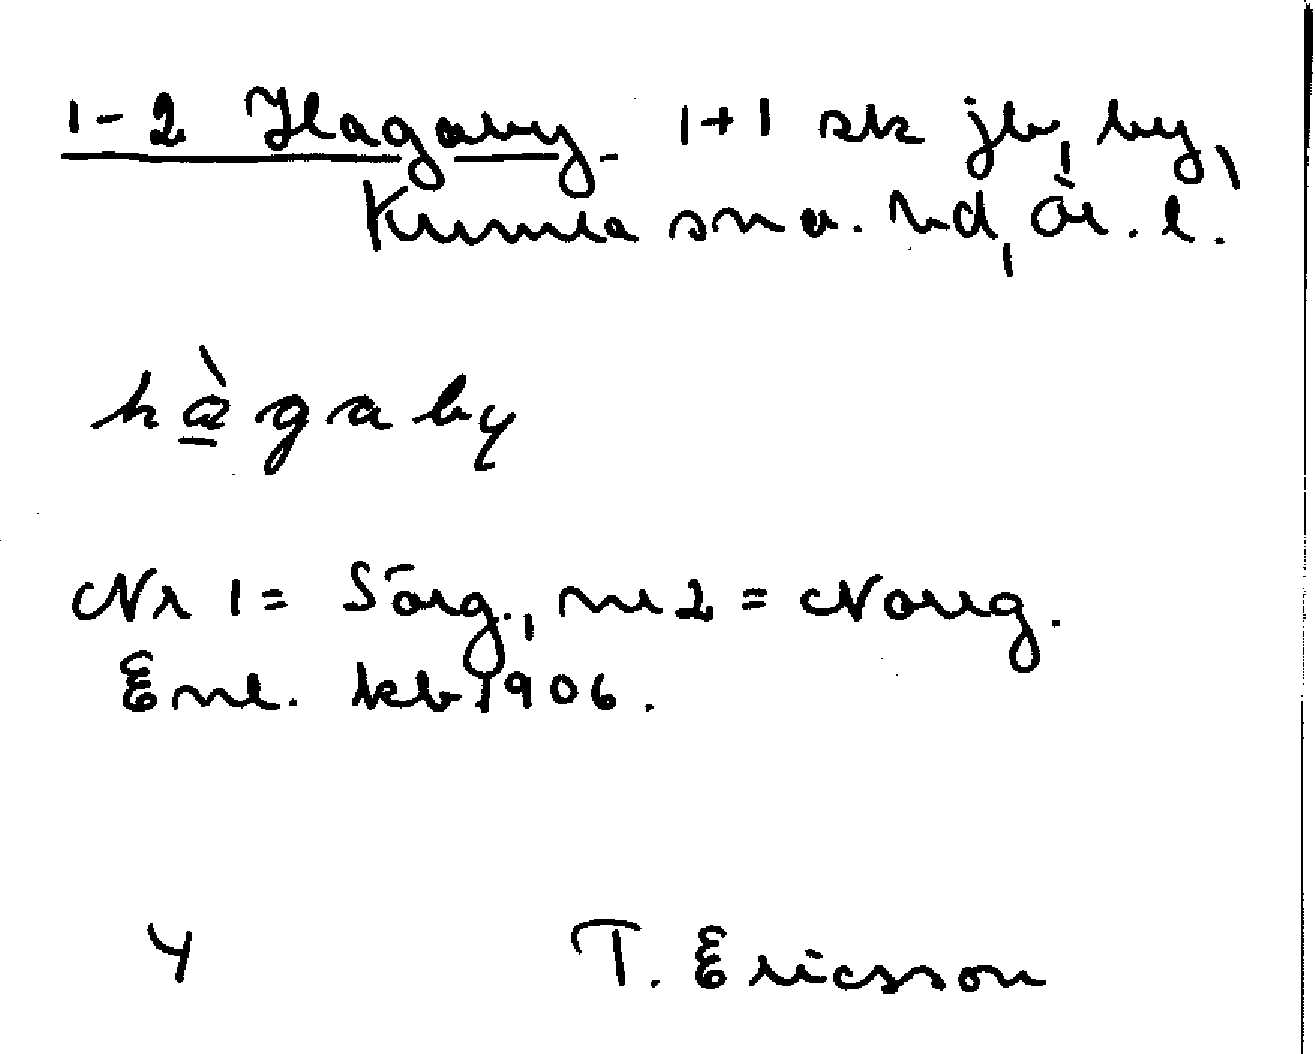 1-2 Hagaby. 1+1 sk jb, by,
Kumla sn o. hd, Ör. l.
hàgaby
Nr 1 = Sörg., nr 2 = Norrg.
Enl. kb 1906.
4 T. Ericsson